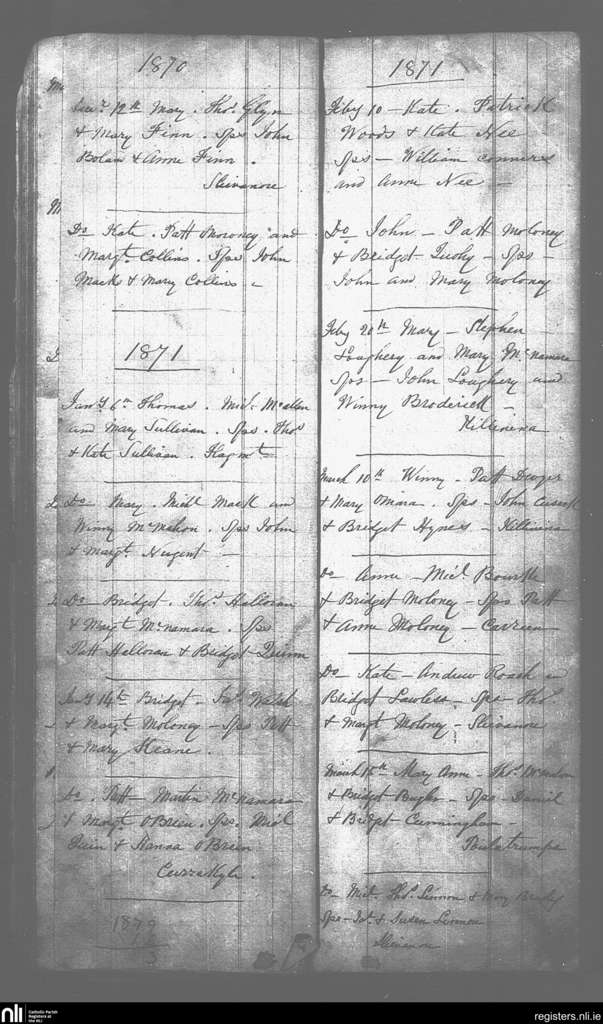 1870
Jany 12th Mary. Thos. Glyn
& Mary Finn. Sps John
Bolan & Anne Finn.
Slievanore
Do Kate. Patt Moroney and
Margt. Collins. Sps John
Macks & Mary Collins -
1871
Jany 6th Thomas. Micl.
and Mary Sullivan. Sps. Thos
& Kate Sullivan.
Do Mary. Michl Mack and
Winny McMahon. Sps John
& Margt. Nugent -
Do Bridget. Thos. Halloran
& Margt McNamara. Sps
Patt Halloran & Bridget Quinn
Jany 14th Bridget - Jas. Walsh
& Margt. Moloney - Sps Patt
& Mary Sleane.
Do Patt - Martin McNamara
& Margt. OBrien. Sps. Micl
Quin & OBrien
187
1871
Feby 10 - Kate. Patrick
Woods & Kate Nee
Sps - William conners
and Anne Nee -
Do John - Patt Moloney
& Bridget - Sps -
John and Mary Moloney
Feby 20th Mary - Stephen
Loughery and Mary McNamara
Sps - John Loughery and
Winny Broderick -
Killenena
March 10th Winny - Patt Dwyer
& Mary Omara. Sps - John Cusack
& Bridget Hynes - Killenena
Do Anne - Micl. Bourke
& Bridget Moloney - Sps Patt
& Anne Moloney - Carreen
Do Kate - Andrew Roach
Bridget Lawless. Sps Thos
& Margt Moloney - Slievanore
March 15th Mary Anne - Thos.
& Bridget Bugler - Sps - Daniel
& Bridget Cunningham -
Do Micl. Thos. Lennon & Mary
Sps - Jas. & Susan Lennon
Slievanore
nli
Catholic Parish
Registers at
the NLI
registers.nli.ie